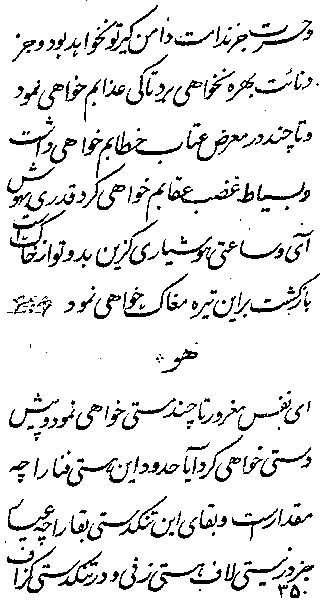 و حسرت جز ندامت دامن گیر تو نخواهد بود و جز
دنائت بهره نخواهی برد تا کی عذابم خواهی نمود
و تا چند در معرض عتاب خطابم خواهی داشت
و بسیاط غضب عقابم خواهی کرد قدری بهوش
آی و ساعتی هوشیاری گزین بد و تو از خاک
بازگشت بر این تیره مغاک خواهی نمود
هو
ای نفس مغرور تا چند مستی خواهی نمود و پیش
دستی خواهی کرد آیا حدود این هستی فنا را چه
مقدار است و بقای این تنگدستی بقا را چه
جز در نیستی لاف هستی زنی و در تنگدستی گزاف
۳۵۰